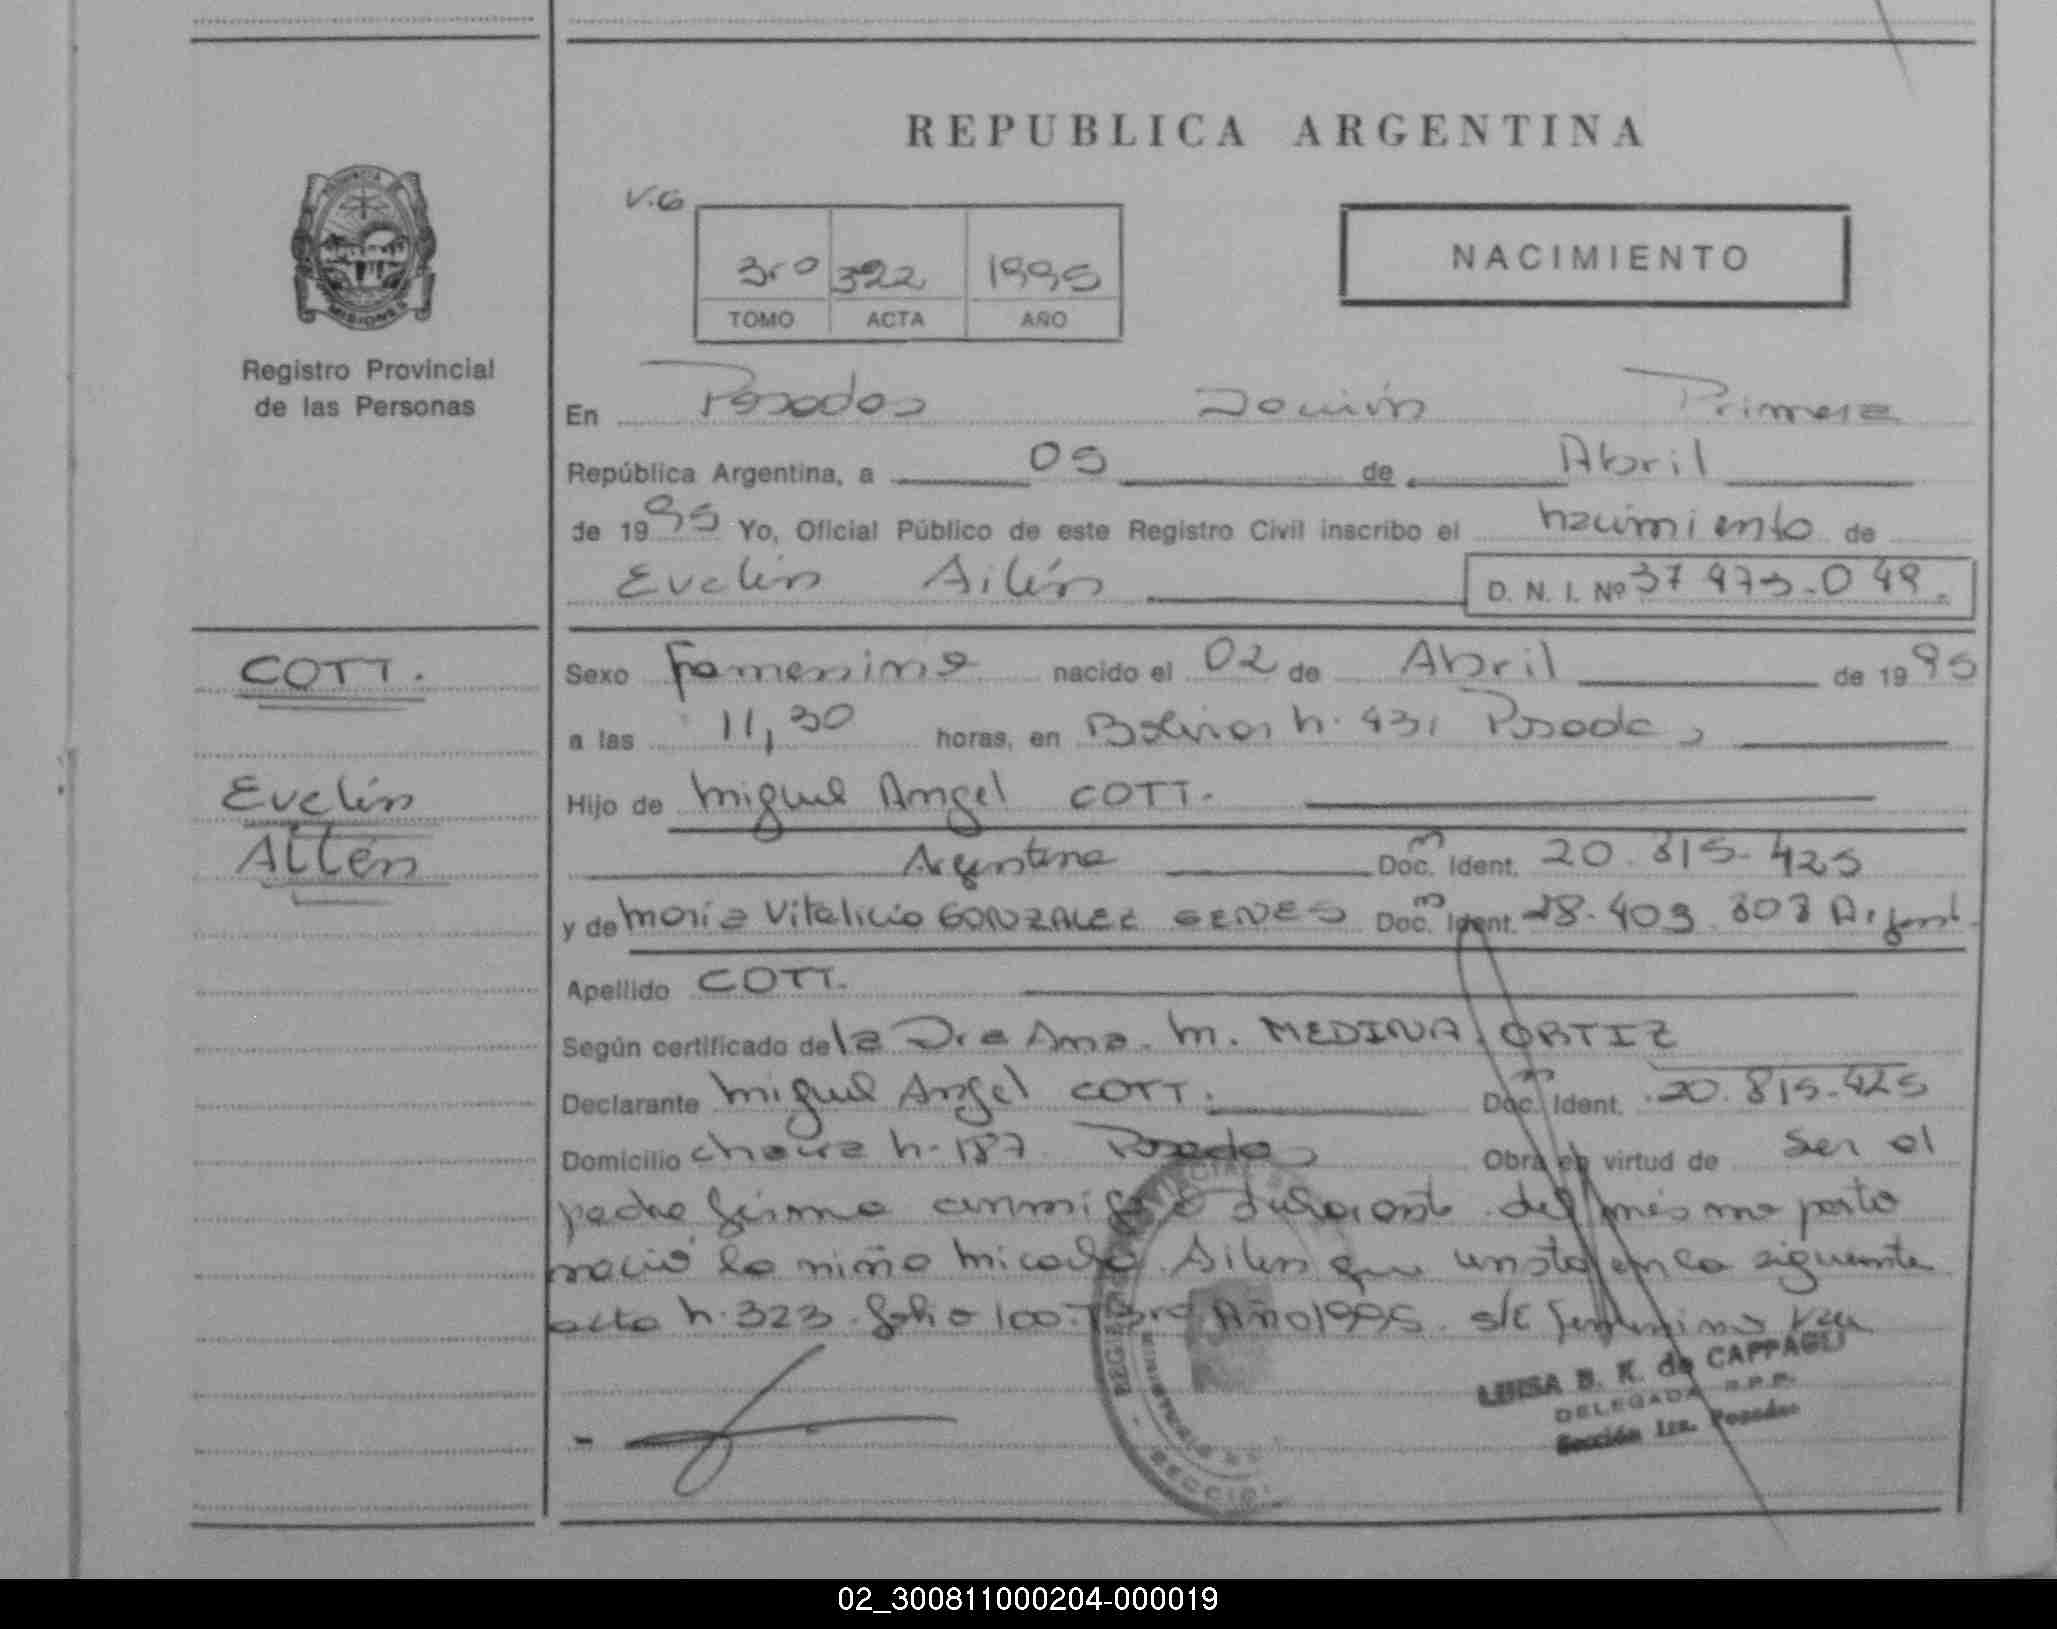 REPUBLICA ARGENTINA
V.G
3ro 322 1995
TOMO ACTA AÑO
NACIMIENTO
PROVINCIA
MISIONES
Registro Provincial
de las Personas
En Posadas Sección Primera
República Argentina, a 05 de Abril
de 1995 Yo, Oficial Público de este Registro Civil inscribo el nacimiento de
Evelin Ailén D. N. I. Nº 37 973.049.
COTT.
Evelin
Ailén
Sexo femenino nacido el 02 de Abril de 1995
a las 11,30 horas, en Bolivar n. 431 Posadas
Hijo de Miguel Angel COTT.
Argentina Doc. Ident. 20.815.425
y de Maria Vitalicia GONZALEZ GENES Doc. Ident. 28.409.303 Argent.
Apellido COTT.
Según certificado de la Dra Ana. M. MEDINA ORTIZ
Declarante Miguel Angel COTT. Doc. Ident. 20.815.425
Domicilio chacra n. 187 Posadas Obra en virtud de ser el
padre firma conmigo declarante del mismo parto
nació la niña Micaela Ailen que consta en la siguiente
acta n. 323 folio 100 T 3ro Año 1995. s/c femenino Vale
LUISA B. K. de CAPPAGLI
DELEGADA R.P.P.
Sección 1ra. Posadas
02_300811000204-000019